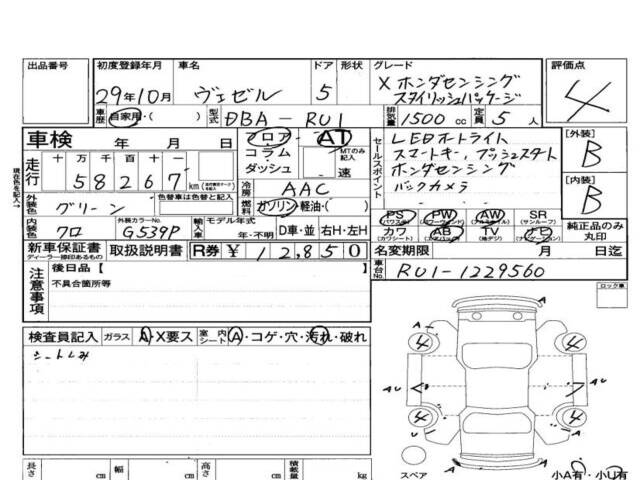 出品番号
初度登録年月
29年10月
車名
ヴェゼル
ドア
5
形状
グレード
X ホンダセンシング
スタイリッシュパッケージ
評価点
4
車歴 自家用・( )
型式 DBA-RU1
排気量 1500cc
定員 5人
車検 年 月 日
フロア AT
コラム
ダッシュ
MTのみ記入
速
セールスポイント
LEDオートライト
スマートキー, プッシュスタート
ホンダセンシング
バックカメラ
[外装]
B
[内装]
B
現在色を記入→
走行 十万 万 千 百 十
58267km
冷房 AAC
燃料 ガソリン・軽油・( )
外装色 グリーン
色替車は色替と記入
PS (パワステ) PW (パワーウィンドウ) AW (アルミホイル) SR (サンルーフ)
カワ (カワシート) AB (エアバッグ) TV (地デジ) ナビ
純正品のみ丸印
内装色 クロ
外装カラーNo. G539P
輸入車 モデル年式
年・不明
D車・並 右H・左H
新車保証書
ディーラー捺印あるもの
取扱説明書
R券 ¥ 12,850
名変期限 月 日迄
車台No. RU1-1229560
注意事項
後日品 [ ]
不具合箇所等
ロック車
検査員記入 ガラス A・X要ス 室内シート A・コゲ・穴・汚れ・破れ
シートしみ
A
U
A
4
4
AU
AU
4
4
A
A
スペア
小A有・小U有
長さ cm 幅 cm 高さ cm 積載量 kg